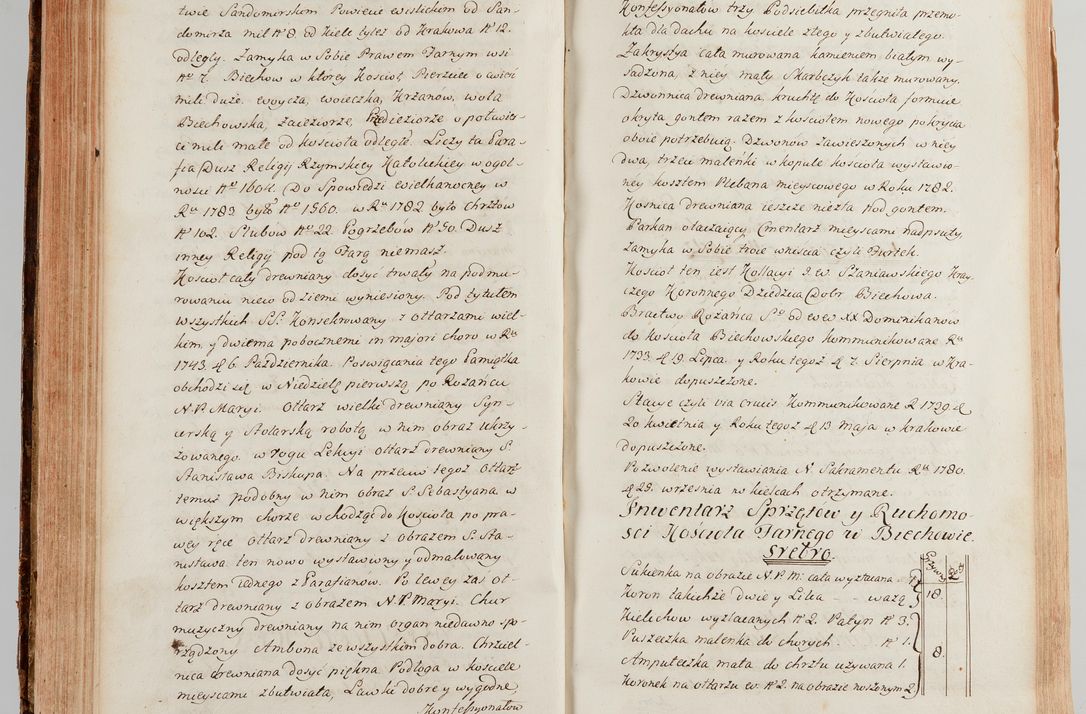 twie Sandomirskim Powiecie wislickim od San-
domirza mil No 8. od Kielc tyleż od Krakowa No 12.
odległy. Zamyka w Sobie Prawem Farnym wsi
No 7. Biechow w ktorey Koscioł, Pierzciec o cwierć
mili duże, woycza, woieczka, Krzanów, wola
Biechowska, zaiezioże, Podieziorze o połtwier-
ci mili małe od koscioła odległe. Liczy ta Para-
fia Dusz Religij Rzymskiey Katolickiey w ogol-
nosci No 1604. Do Spowiedzi wielkanocney w
Ru 1783 było No 1560. w Ru 1782 było chrztow
No 102. Slubów No 22. Pogrzebów No 50. Dusz
inney Religij pod tą Farą niemasz.
Kosciol cały drewniany dosyć trwały na podmu-
rowaniu nieco od ziemi wyniesiony. Pod tytułem
wszystkich SS: Konsekrowany z ołtarzami wiel-
kim, y dwiema pobocznemi in majori choro w Ru
1743. d 6. Października. Poswiącania tego Pamiątka
obchodzi się w Niedzielę pierwszą po Rożańcu
N. P. Maryi. Ołtarz wielki drewniany Sny-
cerską y Stolarską robotą, w nim obraz ukrzy-
żowanego. w Rogu Lekcyi ołtarz drewniany S.
Stanisława Biskupa. Na przeciw tegoż Ołtarz
temuż podobny w nim obraz S. Sebastyana w
większym chorze wchodząc do Koscioła po pra-
wey ręce Ołtarz drewniany z obrazem S. Sta-
nisława. ten nowo wystawiony y odmalowany
kosztem iednego z Parafianów. Po lewey zas oł-
tarz drewniany z obrazem N. P. Maryi. Chur
muzyczny drewniany na nim organ niedawno spo-
rządzony Ambona ze wszystkim dobra. Chrzciel-
nica drewniana dosyć piękna Podłoga w kosciele
mieyscami zbutwiała, Ławki dobre y wygodne,
Konfessyonałow
Konfessyonałow trzy Podsiebitka przegniła przemo-
kła dla dachu na kosciele złego y zbutwiałego.
Zakrystya cała murowana kamieniem białym wy-
sadzona, z niey mały Skarbczyk także murowany.
Dzwonnica drewniana, kruchtę do Koscioła formuie
okryta gontem razem z kosciołem nowego pokrycia
oboie potrzebuią. Dzwonów zawieszonych w niey
dwa, trzeci maleńki w kopule koscioła wystawio-
ney kosztem Plebana mieyscowego w Roku 1782.
Kosnica drewniana ieszcze niezła pod gontem.
Parkan otaczaiący Cmentarz mieyscami nadpsuty
zamyka w Sobie troie wniścia czyli Furtek.
Kosciol ten iest Kollacyi J. w. Szaniawskiego Kray
czego Koronnego Dziedzica Dobr Biechowa.
Bractwo Rożańca So od ww XX Dominikanów
do koscioła Biechowskiego kommunikowane Ru
1733. d 9. Lipca y Roku tegoż d 7. Sierpnia w Kra-
kowie dopuszczone.
Stacye czyli via crucis Kommunikowane R 1739. d
20 kwietnia y Roku tegoż d 13. Maja w krakowie
dopuszczone.
Pozwolenie wystawiania N. Sakramentu Ru 1780.
d 29. września w kielcach otrzymane.
Inwentarz Sprzętow y Ruchomo
sci Kościoła Farnego w Biechowie
Srebro
Sukienka na obrazie N. P. M: cała wyzłacana
Koron takichże dwie y Lilia - - ważą 18.
Kielichow wyzłacanych No 2. Patyn No 3.
Puszeczka maleńka do chorych. No 1.
Ampułeczka mała do chrztu używana 1. 8.
Koronek na ołtarzu w. No 2. na obrazie noszonym 2